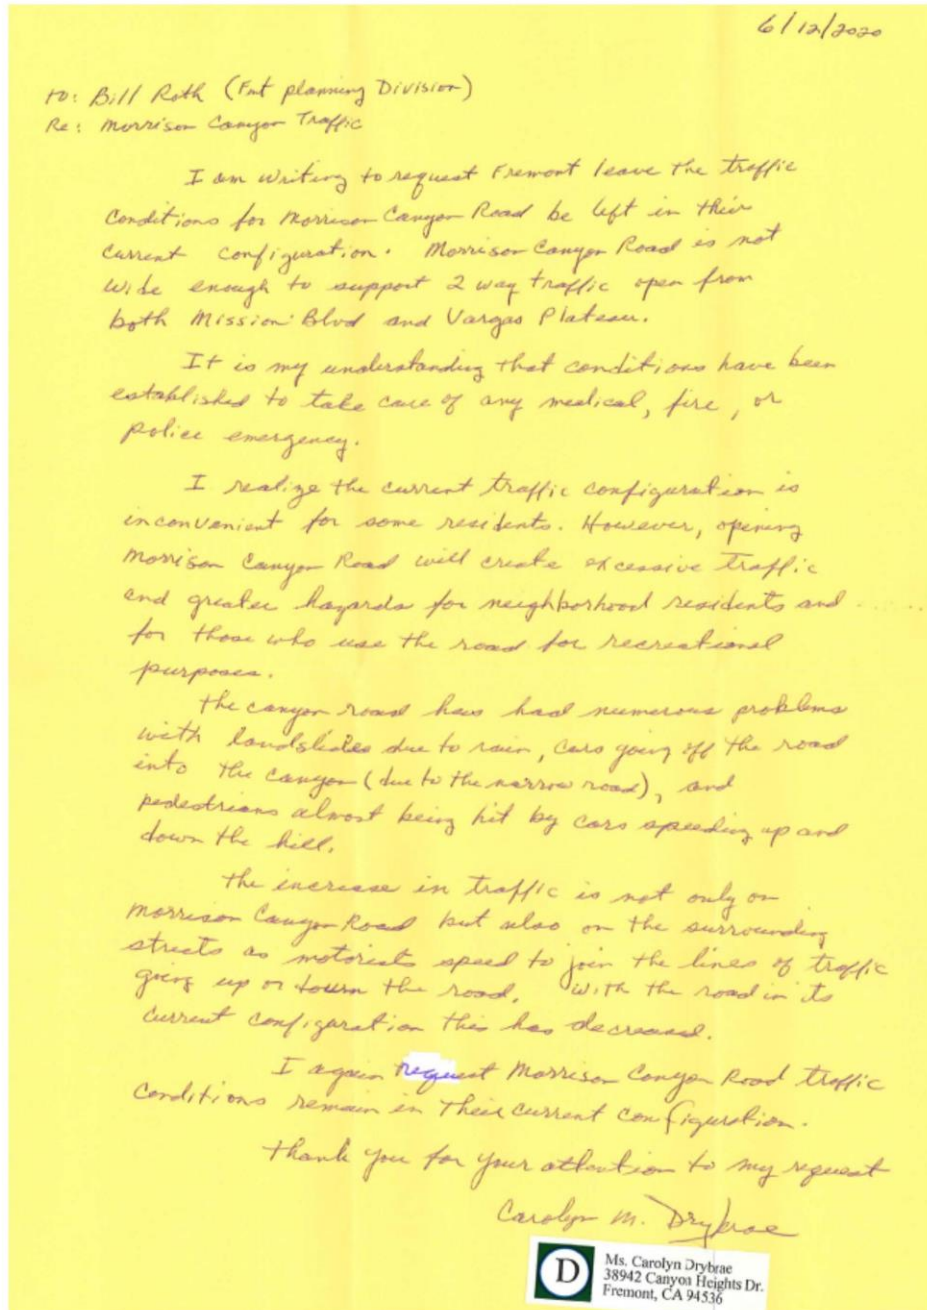 6/12/2020
to: Bill Roth (Fmt planning Division)
Re: Morrison Canyon Traffic
I am writing to request Fremont leave the traffic
conditions for Morrison Canyon Road be left in their
current configuration. Morrison Canyon Road is not
wide enough to support 2 way traffic open from
both Mission Blvd and Vargas Plateau.
It is my understanding that conditions have been
established to take care of any medical, fire, or
police emergency.
I realize the current traffic configuration is
inconvenient for some residents. However, opening
Morrison Canyon Road will create excessive traffic
and greater hazards for neighborhood residents and
for those who use the road for recreational
purposes.
the canyon road has had numerous problems
with landslides due to rain, cars going off the road
into the canyon (due to the narrow road), and
pedestrians almost being hit by cars speeding up and
down the hill.
the increase in traffic is not only on
Morrison Canyon Road but also on the surrounding
streets as motorists speed to join the lines of traffic
going up or down the road. With the road in its
current configuration this has decreased.
I again request Morrison Canyon Road traffic
conditions remain in their current configuration.
thank you for your attention to my request
Carolyn M. Drybrae
D
Ms. Carolyn Drybrae
38942 Canyon Heights Dr.
Fremont, CA 94536